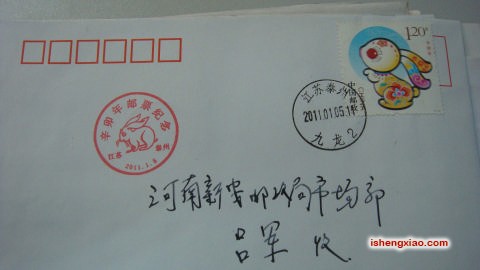 1.20元
中国邮政
CHINA
辛卯年邮票纪念
江苏 泰州
2011.1.5
江苏泰州
2011.01.05.14
九龙2
河南新安邮政局市场部
吕军 收
ishengxiao.com